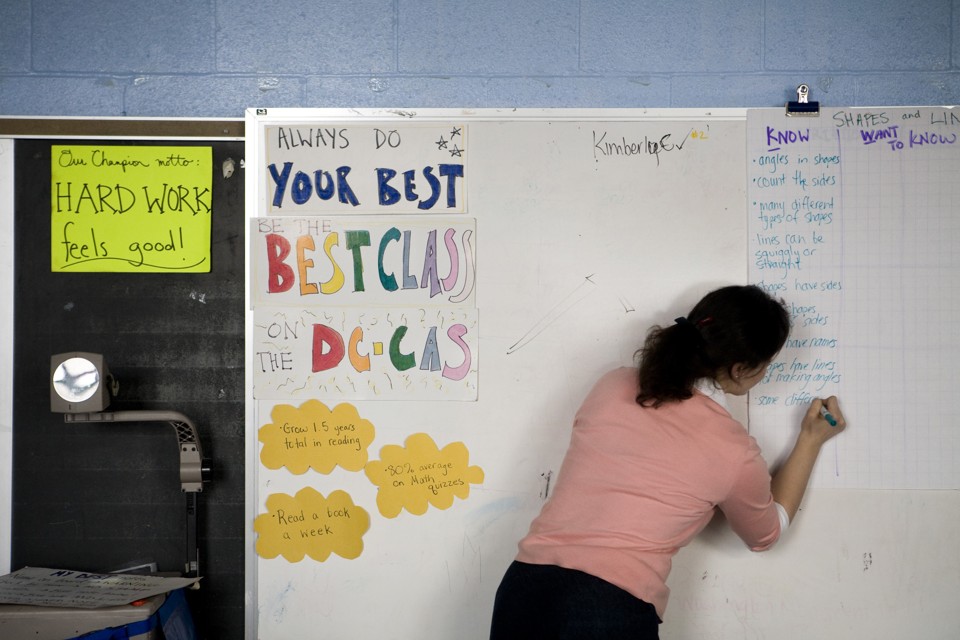 Our Champion motto:
HARD WORK
feels good!
ALWAYS DO
YOUR BEST
BE THE
BEST CLASS
ON
THE
DC-CAS
•Grow 1.5 years
total in reading
•80% average
on Math
quizzes
•Read a book
a week
#2!
SHAPES and LIN
KNOW
•angles in shapes
•count the sides
•many different
types of shapes
lines can be
squiggly or
straight
shapes have sides
shapes
sides
have names
have lines
making angles
some
WANT
TO KNOW